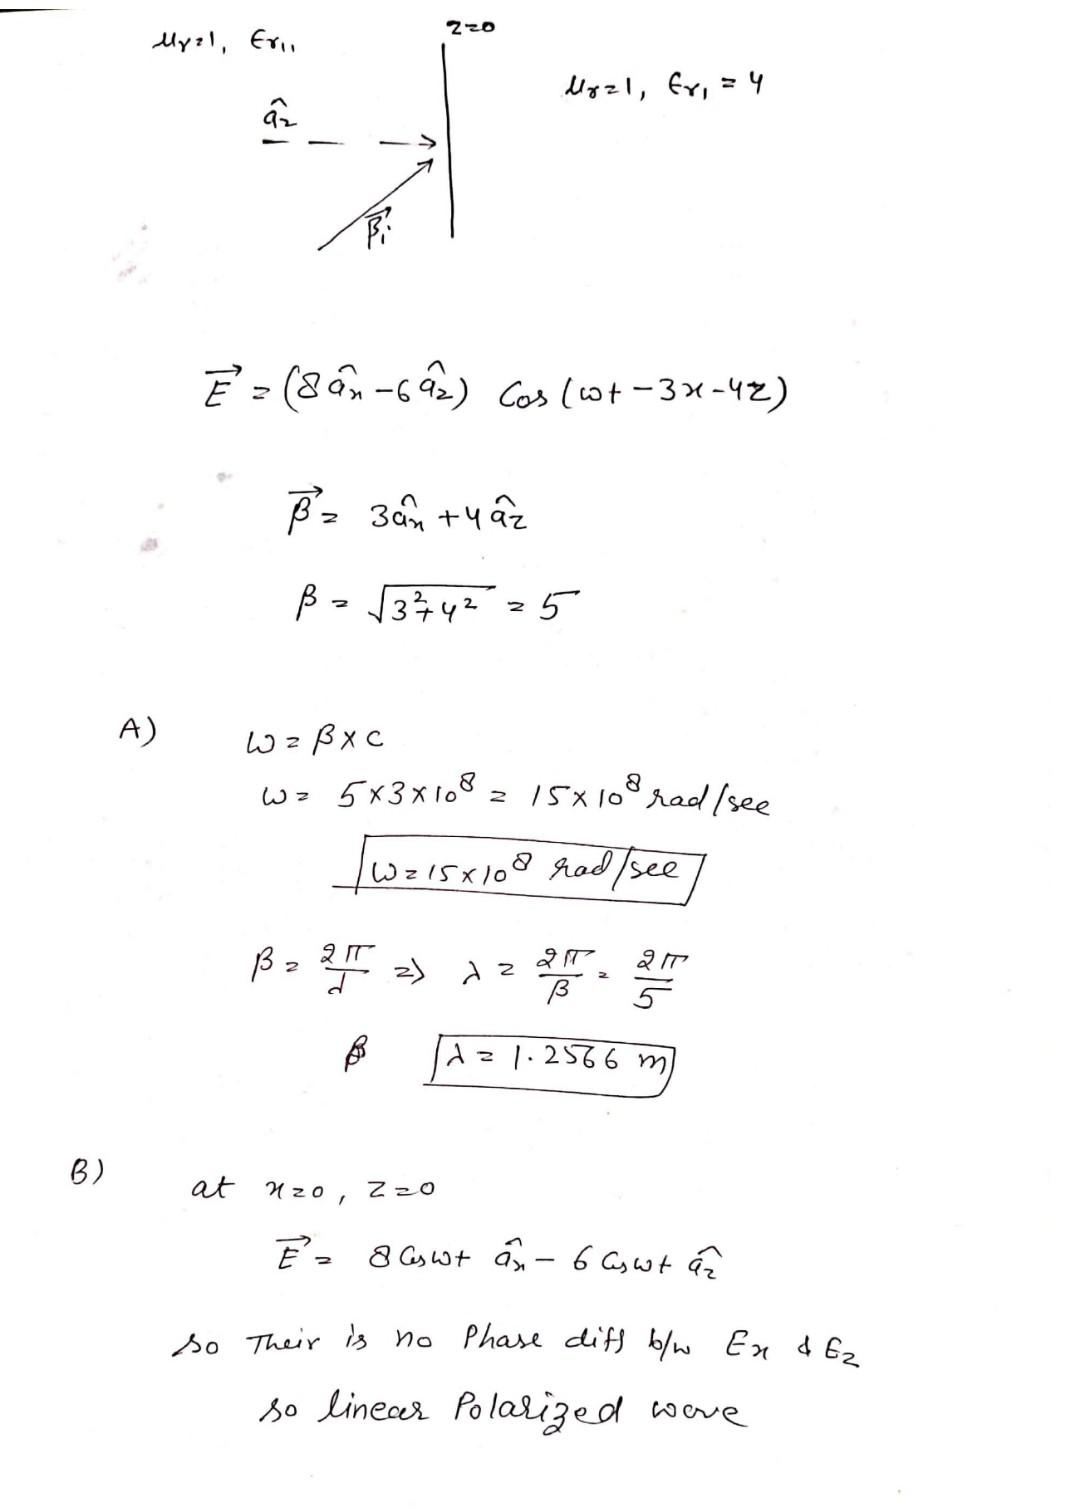 z=0
μr=1, εr1₁
μr=1, εr₁ = 4
â₂
β⃗i
E⃗ = (8 âx - 6 âz) Cos (ωt - 3x - 4z)
β⃗ = 3âx + 4 âz
β = √3²+4² = 5
A) ω = β × c
ω = 5×3×10⁸ = 15×10⁸ rad/see
ω = 15×10⁸ rad/see
β = 2π/d => λ = 2π/β = 2π/5
β λ = 1.2566 m
B) at x=0, z=0
E⃗ = 8 Cosωt âx - 6 Cosωt âz
so Their is no Phase diff b/w Ex & Ez
so linear Polarized wave